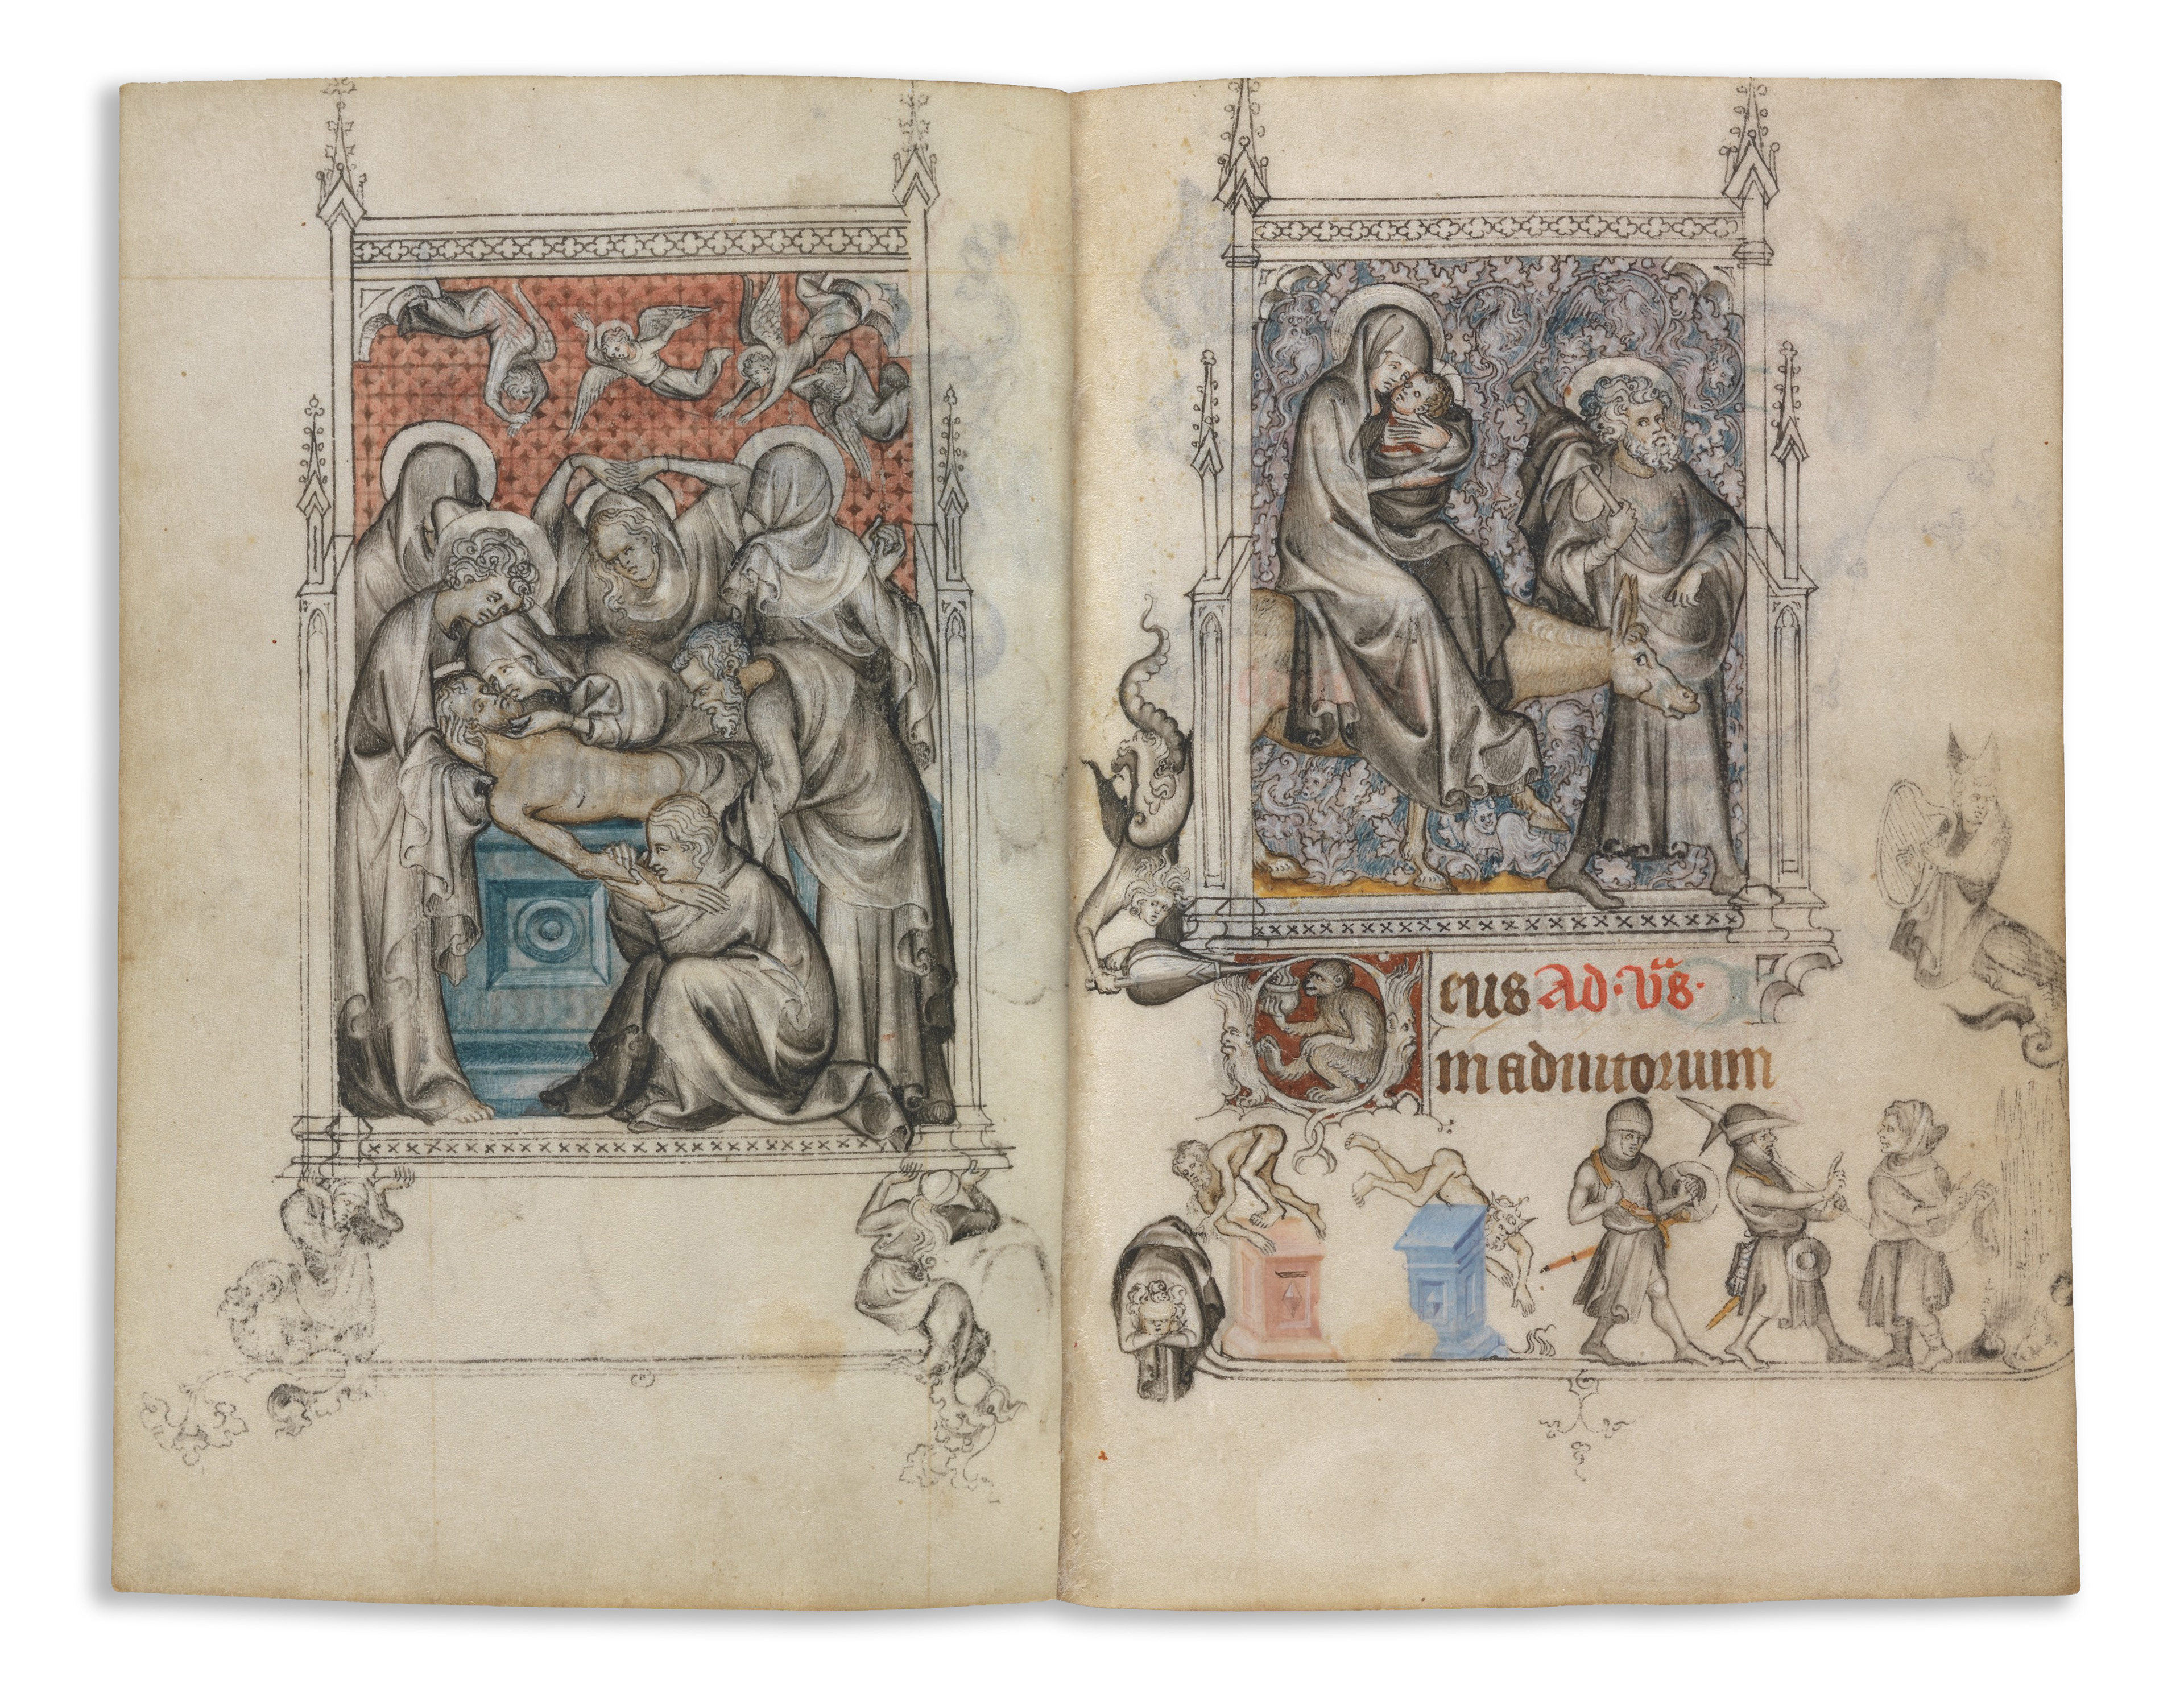 Deus Ad. vs̃.
in adiutorium